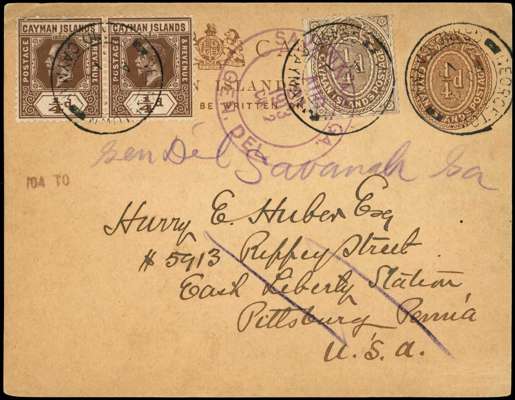 CAYMAN ISLANDS CAYMAN ISLANDS
POSTAGE REVENUE POSTAGE REVENUE
¼d ¼d
CA
N ISLAND
BE WRITTEN
SAVANNAH, GA.
GEN'L DEL.
¼d
CAYMAN ISLANDS POSTAGE
¼d
GEORGETO
Gen Del Savanah Ga
Harry E. Huber Esq
# 5913 Rippey Street
East Liberty Station
Pittsburg Penn'a
U.S.A.